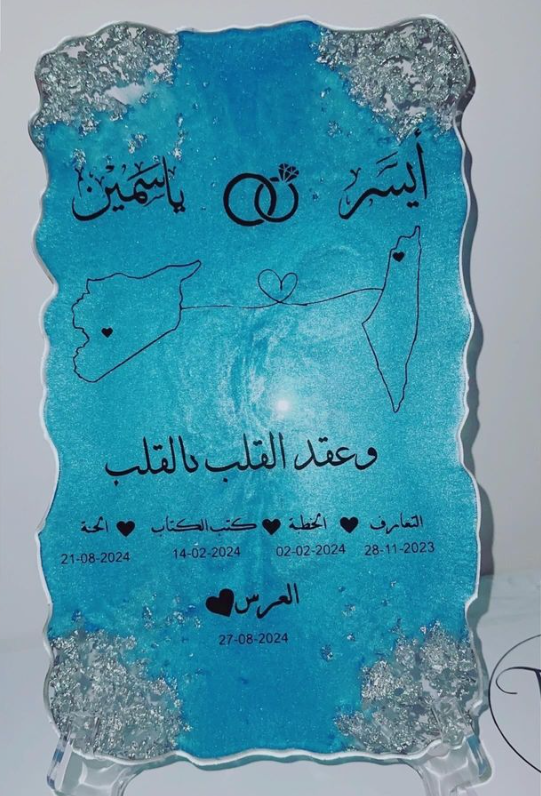 أيسَر ياسَمين
وعقد القلب بالقلب
التعارف الخطبة كتب الكتاب الحنة
28-11-2023 02-02-2024 14-02-2024 21-08-2024
العرس
27-08-2024